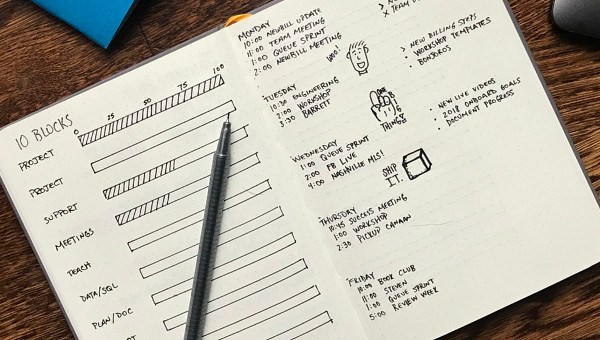 10 BLOCKS
0 25 50 75 100
PROJECT
PROJECT
SUPPORT
MEETINGS
TEACH
DATA/SQL
PLAN/DOC
MONDAY
10:00 NEWBILL UPDATE
11:00 TEAM MEETING
1:00 QUEUE SPRINT
2:00 NEWBILL MEETING
X TEAM
> NEW BILLING STEPS
> WORKSHOP TEMPLATES
· BONJOROS
TUESDAY
10:30 ENGINEERING
2:00 WORKSHOP
3:30 BARRETT
ONE
THING!
· NEW LIVE VIDEOS
· 2018 ONBOARD GOALS
· DOCUMENT PROGRESS
WEDNESDAY
1:00 QUEUE SPRINT
2:00 FB LIVE
4:00 NASHVILLE MLS!
SHIP
I.T.
THURSDAY
10:45 SUCCESS MEETING
1:00 WORKSHOP
2:30 PICKUP CANAAN
FRIDAY
10:00 BOOK CLUB
11:00 STEVEN
1:00 QUEUE SPRINT
5:00 REVIEW WEEK